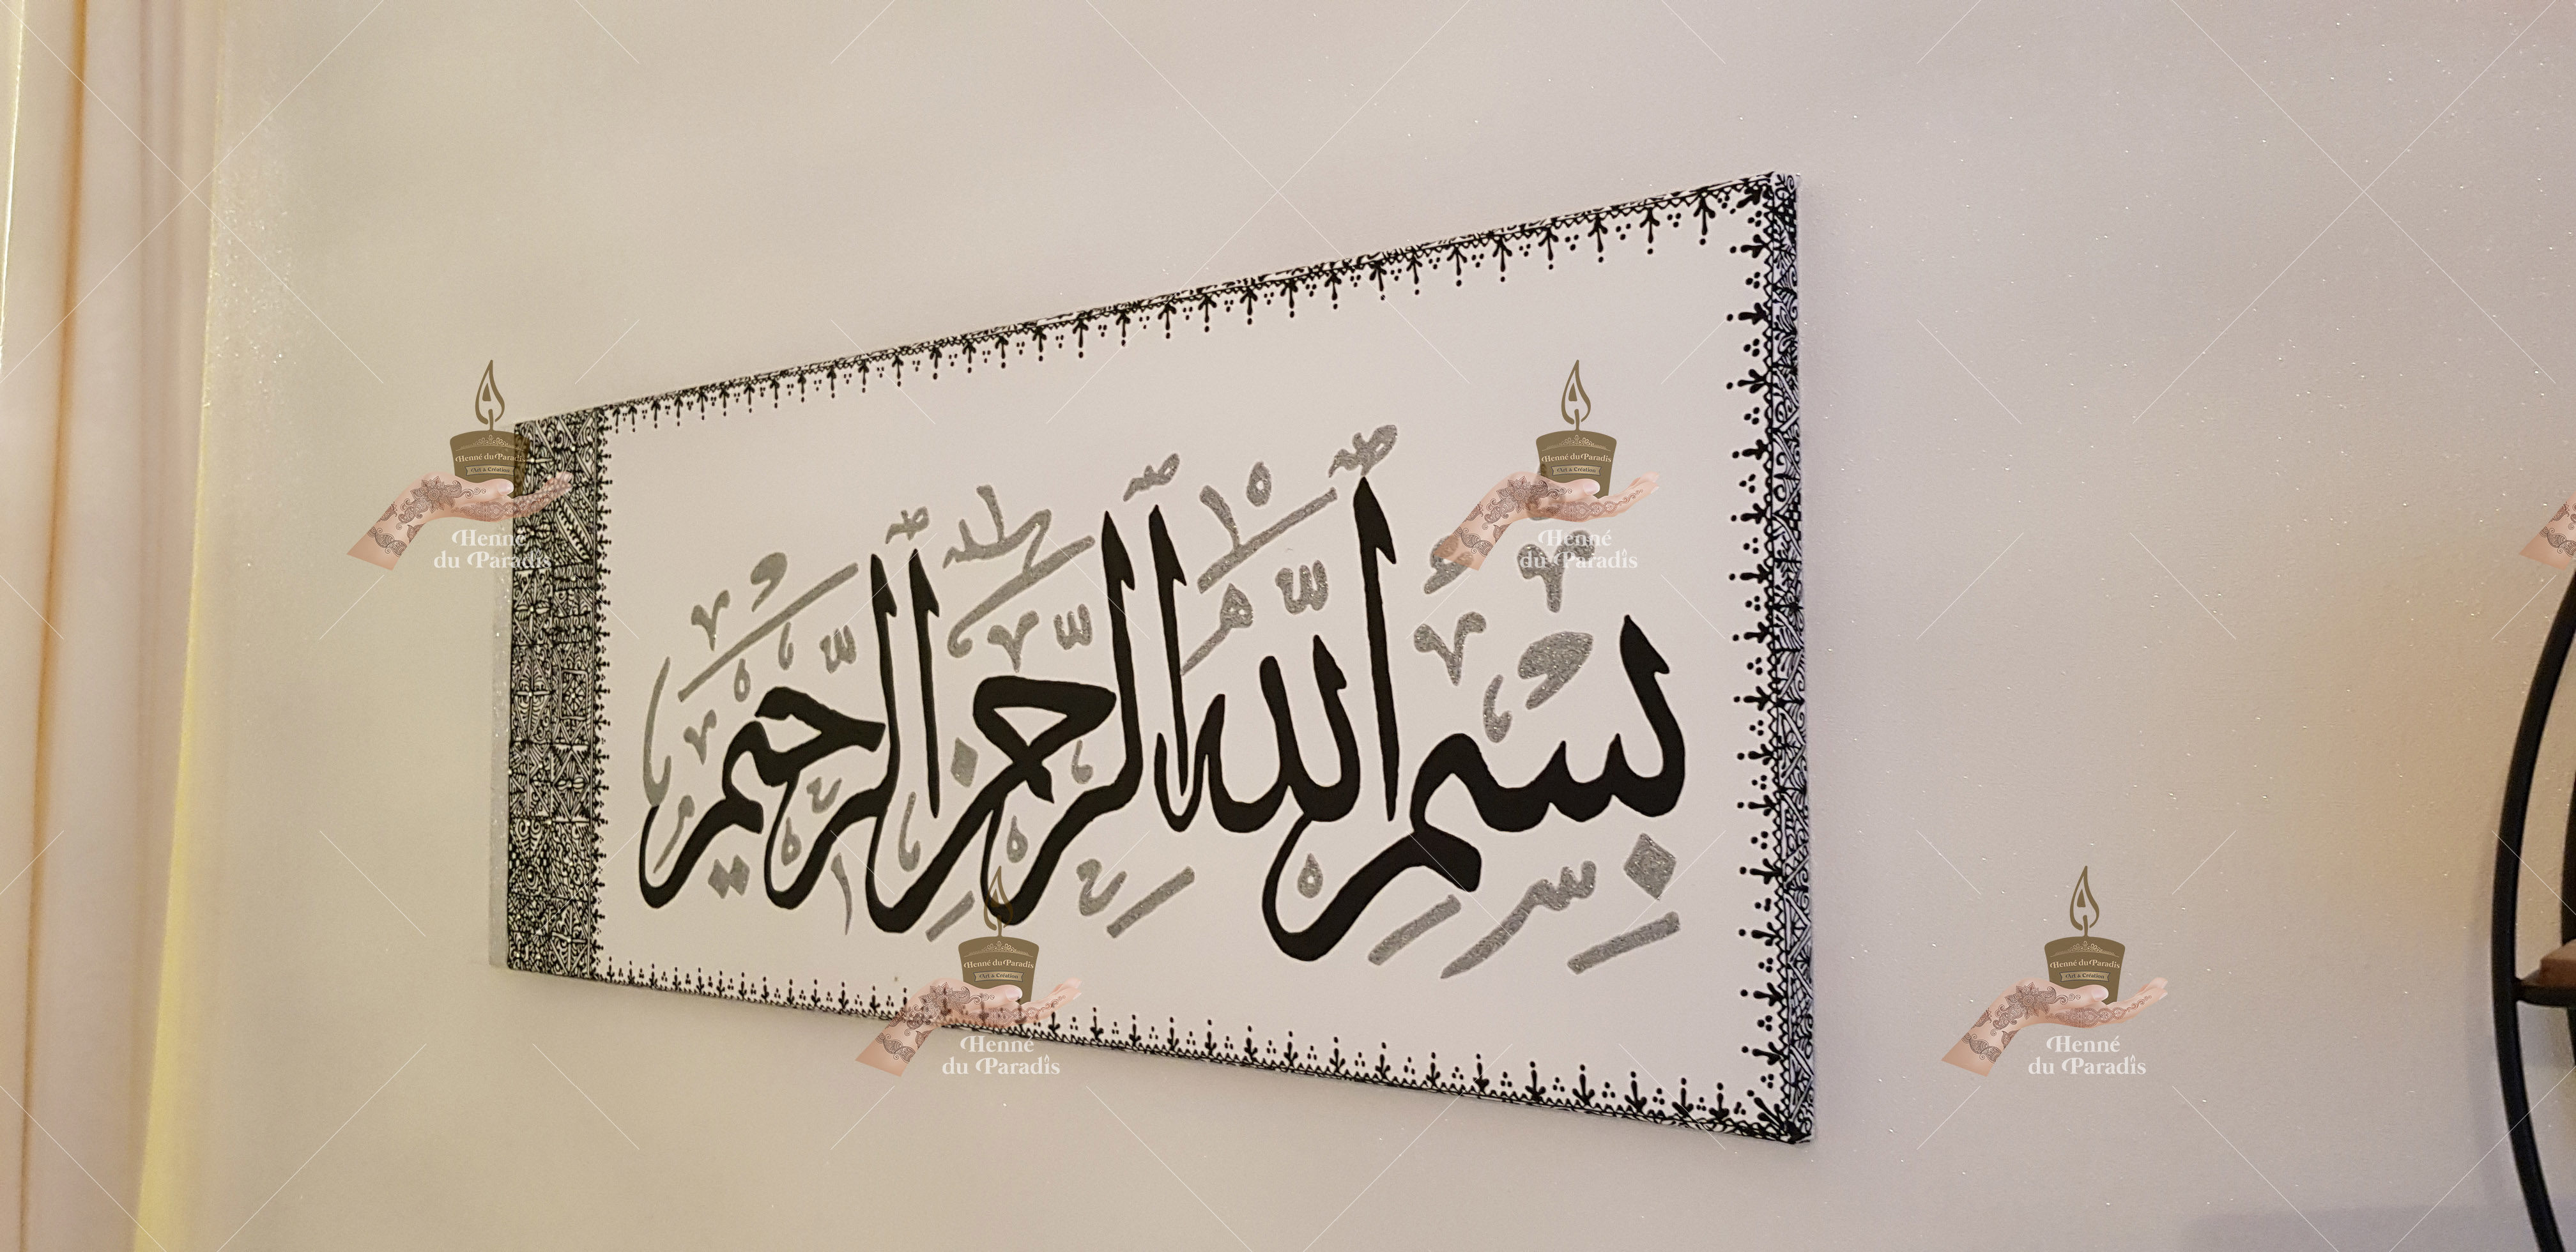 بِسْمِ اللّٰهِ الرَّحْمٰنِ الرَّحِيْمِ
Henné du Paradis
Art & Création
Henné
du Paradis
Henné du Paradis
Art & Création
Henné
du Paradis
Henné du Paradis
Art & Création
Henné
du Paradis
Henné du Paradis
Art & Création
Henné
du Paradis